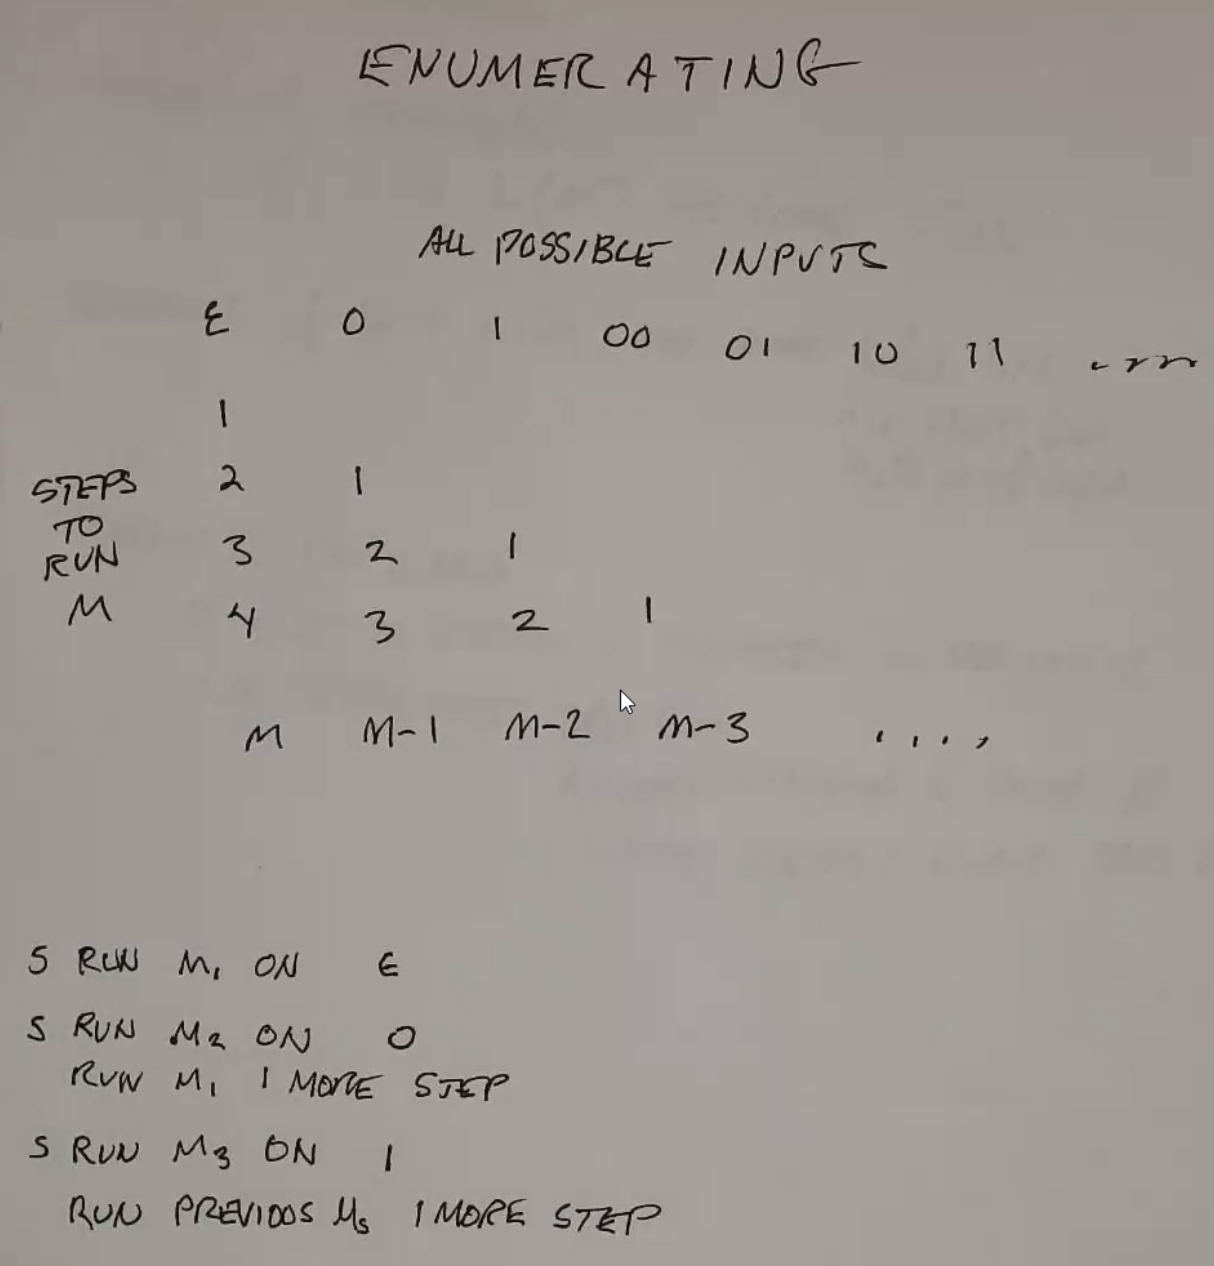 ENUMERATING
ALL POSSIBLE INPUTS
ε 0 1 00 01 10 11 ....
1
STEPS 2 1
TO
RUN 3 2 1
M 4 3 2 1
M M-1 M-2 M-3 ....
S RUN M₁ ON ε
S RUN M₂ ON 0
RUN M₁ 1 MORE STEP
S RUN M₃ ON 1
RUN PREVIOOS Ms 1 MORE STEP